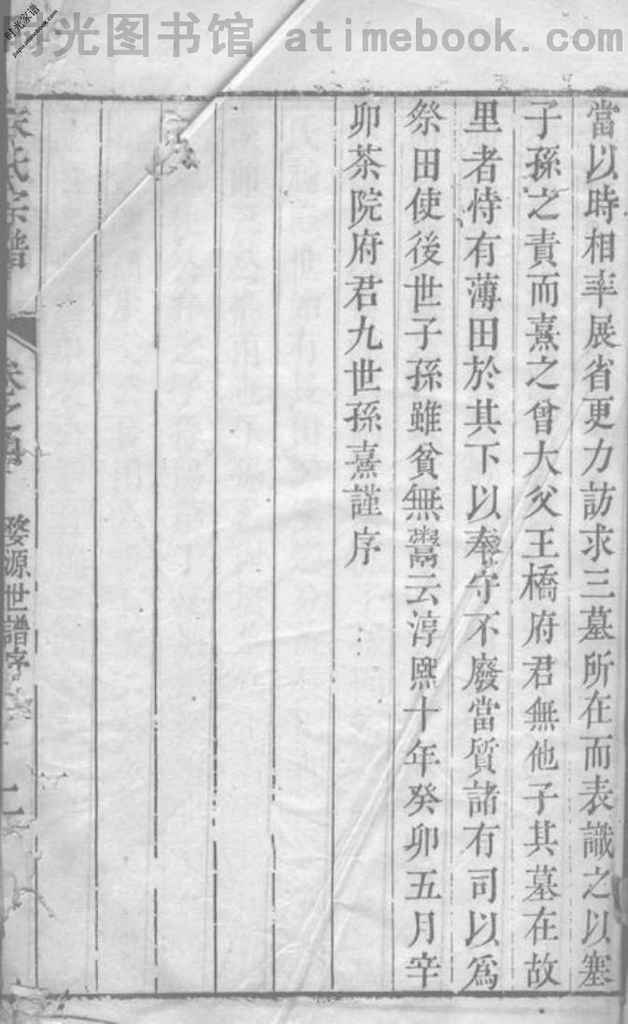 时光图书馆 atimebook.com
时光家谱
當以時相率展省更力訪求三墓所在而表識之以塞
子孫之責而熹之曾大父王橋府君無他子其墓在故
里者恃有薄田於其下以奉守不廢當質諸有司以爲
祭田使後世子孫雖貧無鬻云淳熙十年癸卯五月辛
卯茶院府君九世孫熹謹序
朱氏宗譜
卷之
婺源世譜序